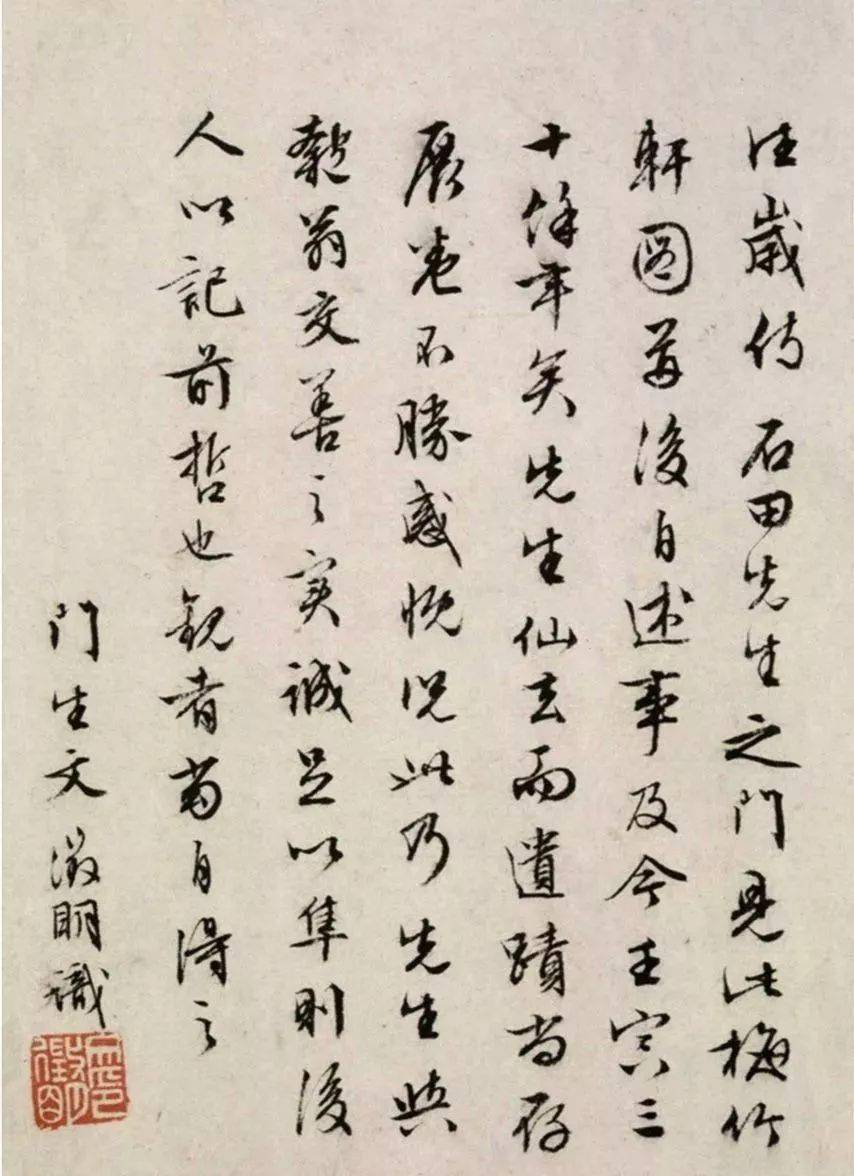 往歲侍 石田先生之門見此梅竹
軒圖後自述事及今壬寅三
十餘年矣先生仙去而遺蹟尚存
展卷不勝感慨況此乃先生與
匏翁交善之實誠足以隼則後
人以記前哲也觀者當自得之
門生文徵明識